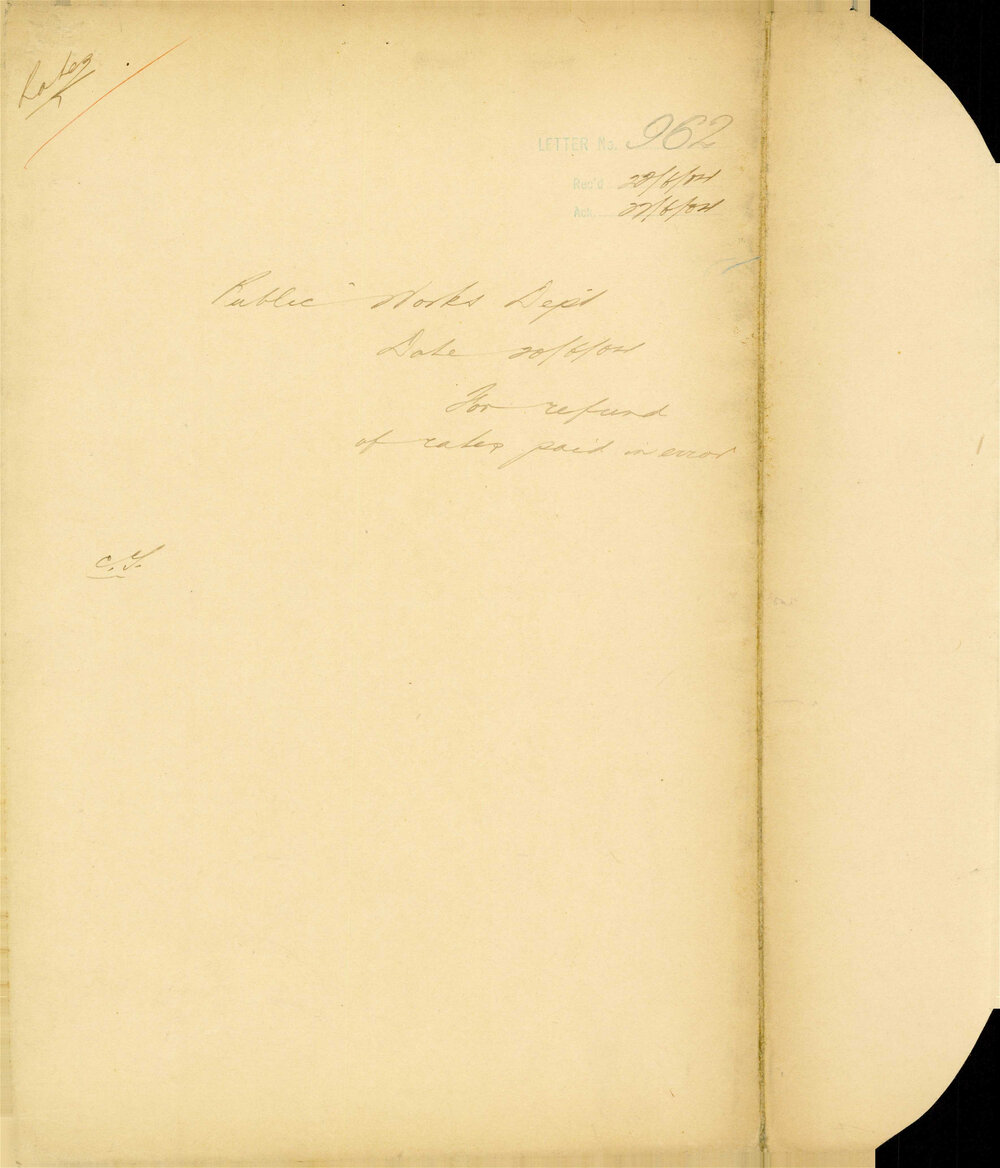 Rates
LETTER No. 962
Rec'd 22/6/04
Ack. 22/6/04
Public Works Dept
Date 20/6/04
For refund
of rates paid in error
C.T.